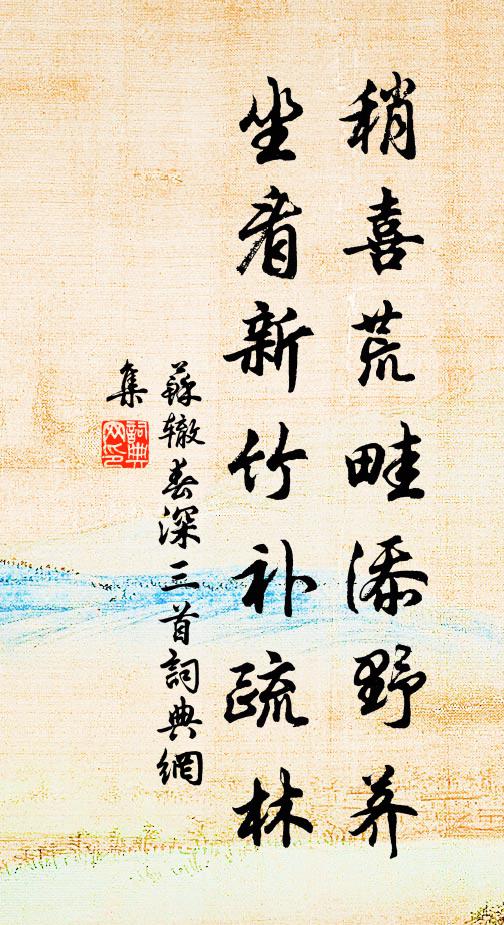 稍喜荒畦添野荠
坐看新竹补疏林
蘇辙春深三首詞典網
集
詞典
网印